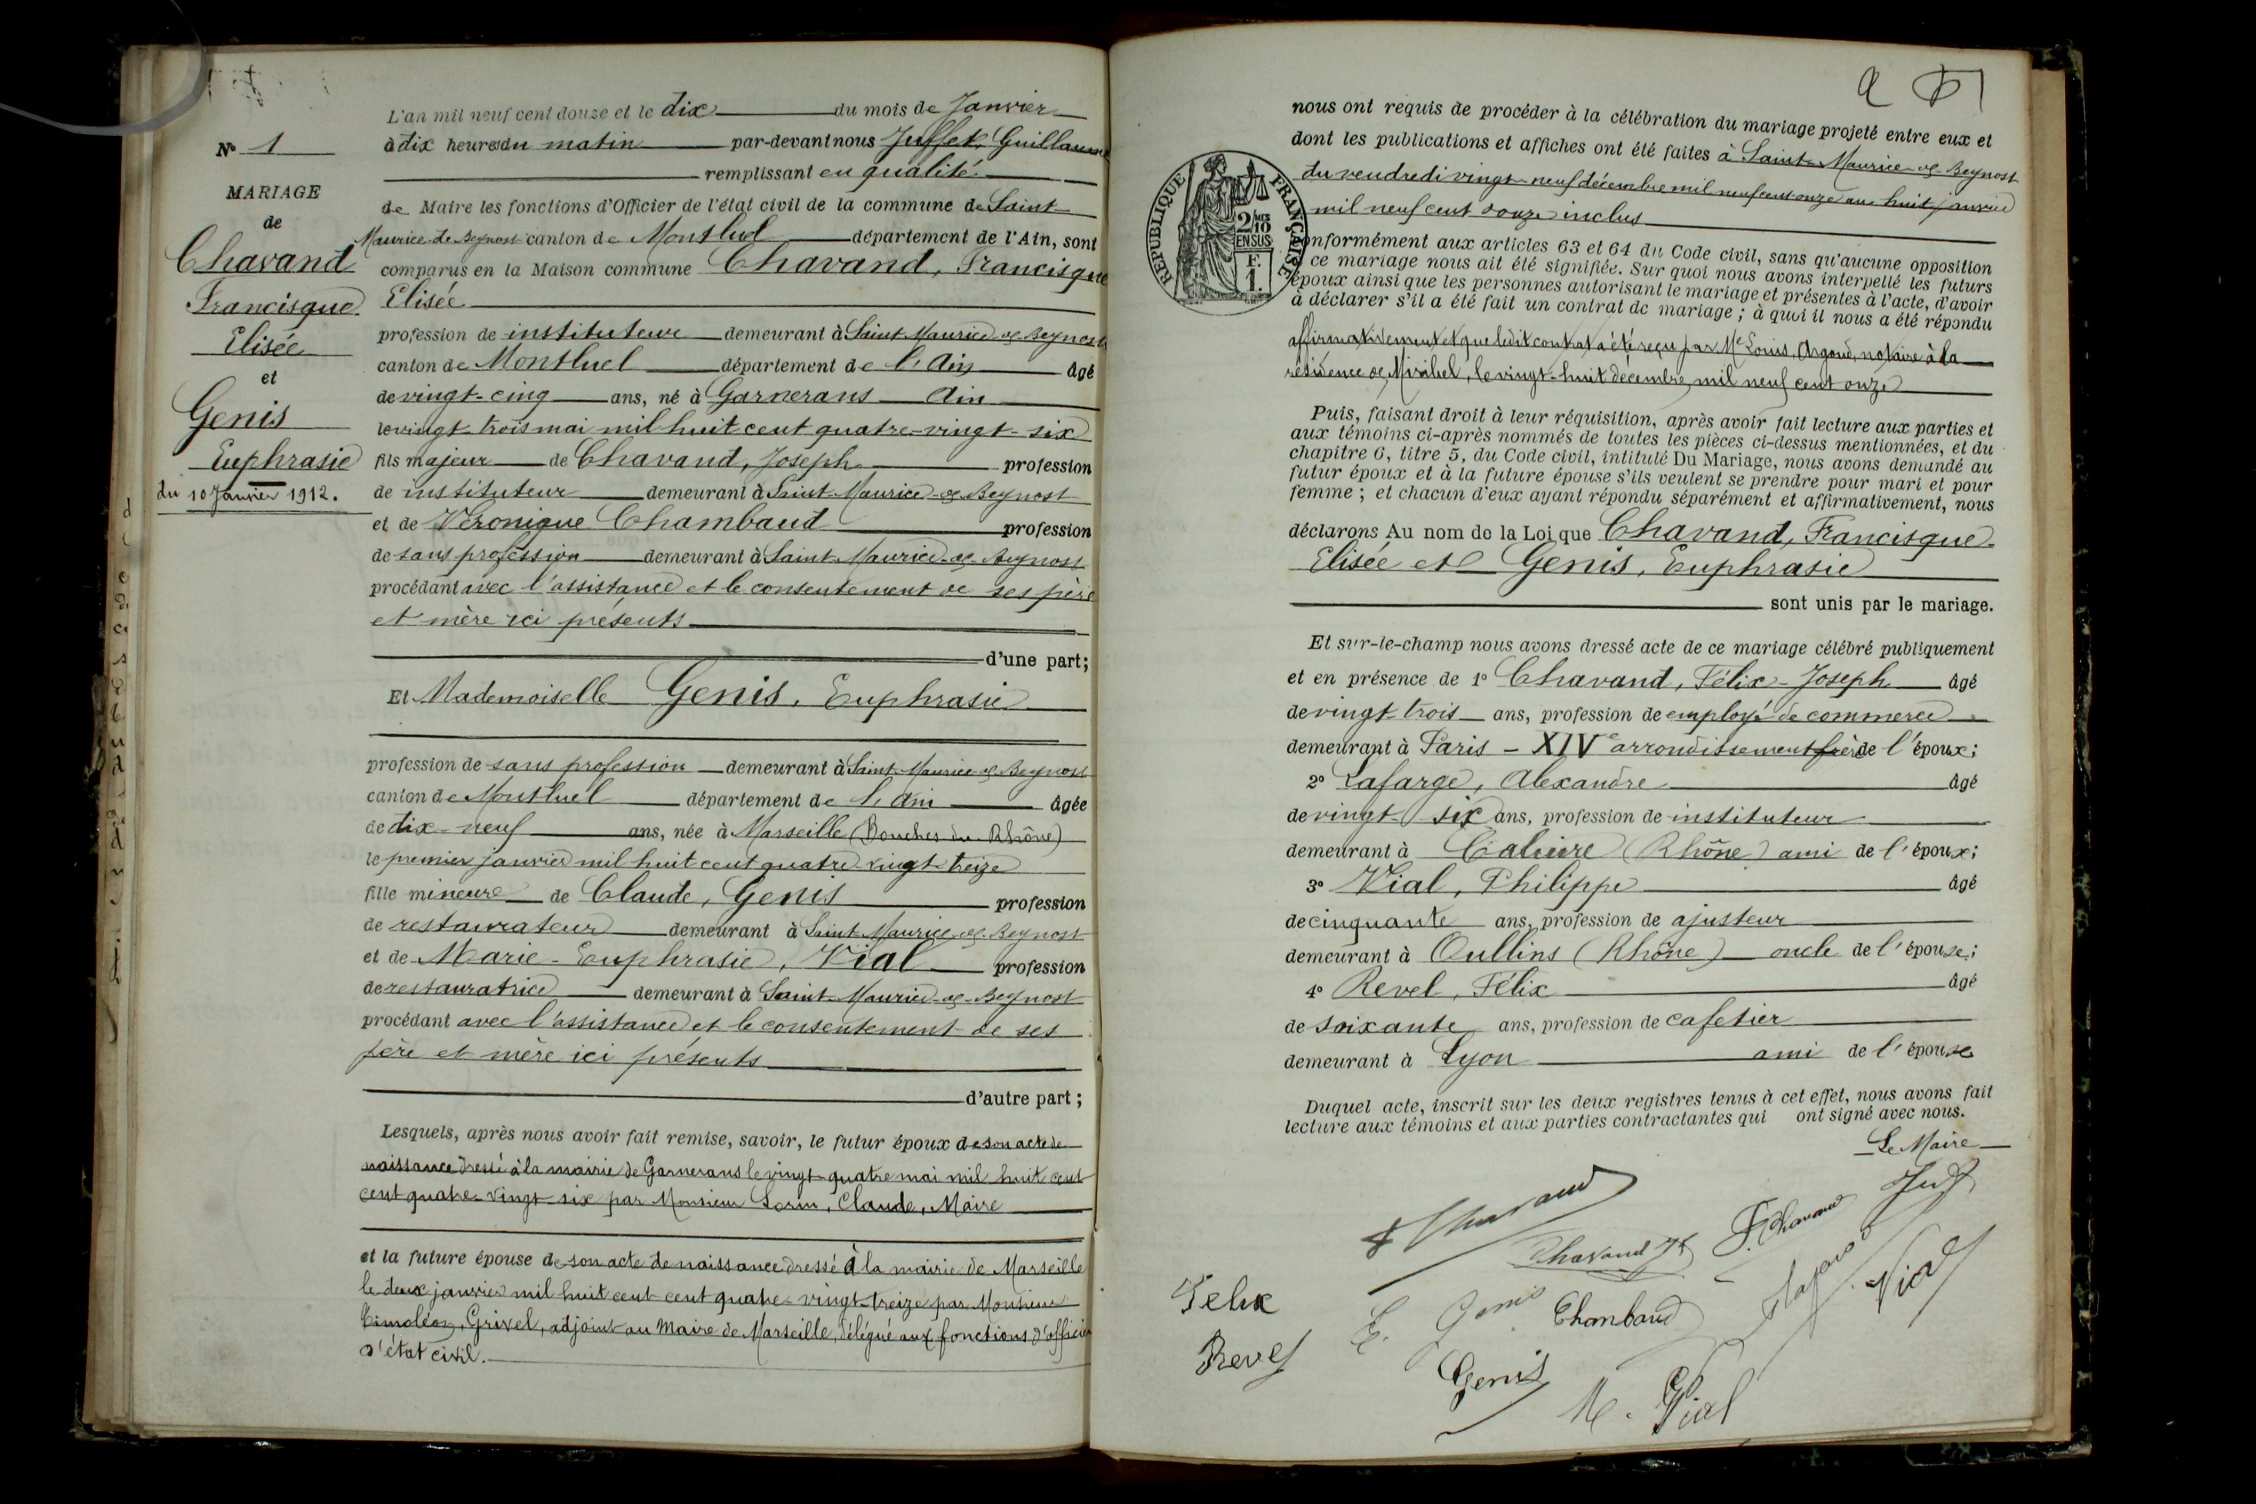 N° 1
MARIAGE
de
Chavand
Francisque
Elisée
et
Genis
Euphrasie
du 10 Janvier 1912.
L'an mil neuf cent douze et le dix du mois de Janvier
à dix heures du matin par-devant nous Juffet, Guillaume
remplissant en qualité
de Maire les fonctions d'Officier de l'état civil de la commune de Saint-
Maurice-de-Beynost canton de Montluel département de l'Ain, sont
comparus en la Maison commune Chavand, Francisque
Elisée
profession de instituteur demeurant à Saint-Maurice-de-Beynost
canton de Montluel département de l'Ain âgé
de vingt-cinq ans, né à Garnerans Ain
le vingt-trois mai mil huit cent quatre-vingt-six
fils majeur de Chavand, Joseph profession
de instituteur demeurant à Saint-Maurice-de-Beynost
et de Véronique Chambaud profession
de sans profession demeurant à Saint-Maurice-de-Beynost
procédant avec l'assistance et le consentement de ses père
et mère ici présents
d'une part;
Et Mademoiselle Genis, Euphrasie
profession de sans profession demeurant à Saint-Maurice-de-Beynost
canton de Montluel département de l'Ain âgée
de dix-neuf ans, née à Marseille (Bouches-du-Rhône)
le premier janvier mil huit cent quatre-vingt-treize
fille mineure de Claude, Genis profession
de restaurateur demeurant à Saint-Maurice-de-Beynost
et de Marie-Euphrasie, Vial profession
de restauratrice demeurant à Saint-Maurice-de-Beynost
procédant avec l'assistance et le consentement de ses
père et mère ici présents
d'autre part;
Lesquels, après nous avoir fait remise, savoir, le futur époux de son acte de
naissance dressé à la mairie de Garnerans le vingt-quatre mai mil huit cent
cent quatre-vingt-six par Monsieur Lorin, Claude, Maire
et la future épouse de son acte de naissance dressé à la mairie de Marseille
le deux janvier mil huit cent cent quatre-vingt-treize par Monsieur
Timoléon, Grivel, adjoint au Maire de Marseille, délégué aux fonctions d'officier
d'état civil.
nous ont requis de procéder à la célébration du mariage projeté entre eux et
dont les publications et affiches ont été faites à Saint-Maurice-de-Beynost
du vendredi vingt-neuf décembre mil neuf cent onze au huit janvier
mil neuf cent douze inclus
RÉPUBLIQUE FRANÇAISE
2/10
EN SUS
F.
1.
conformément aux articles 63 et 64 du Code civil, sans qu'aucune opposition
à ce mariage nous ait été signifiée. Sur quoi nous avons interpellé les futurs
époux ainsi que les personnes autorisant le mariage et présentes à l'acte, d'avoir
à déclarer s'il a été fait un contrat de mariage ; à quoi il nous a été répondu
affirmativement et que ledit contrat a été reçu par Me Louis, Argoud, notaire à la
résidence de Miribel, le vingt-huit décembre mil neuf cent onze
Puis, faisant droit à leur réquisition, après avoir fait lecture aux parties et
aux témoins ci-après nommés de toutes les pièces ci-dessus mentionnées, et du
chapitre 6, titre 5, du Code civil, intitulé Du Mariage, nous avons demandé au
futur époux et à la future épouse s'ils veulent se prendre pour mari et pour
femme ; et chacun d'eux ayant répondu séparément et affirmativement, nous
déclarons Au nom de la Loi que Chavand, Francisque
Elisée et Genis, Euphrasie
sont unis par le mariage.
Et sur-le-champ nous avons dressé acte de ce mariage célébré publiquement
et en présence de 1° Chavand, Félix-Joseph âgé
de vingt-trois ans, profession de employé de commerce
demeurant à Paris - XIVe arrondissement frère de l'époux;
2° Lafarge, Alexandre âgé
de vingt-six ans, profession de instituteur
demeurant à Caluire (Rhône) ami de l'époux;
3° Vial, Philippe âgé
de cinquante ans, profession de ajusteur
demeurant à Oullins (Rhône) oncle de l'épouse;
4° Revel, Félix âgé
de soixante ans, profession de cafetier
demeurant à Lyon ami de l'épouse
Duquel acte, inscrit sur les deux registres tenus à cet effet, nous avons fait
lecture aux témoins et aux parties contractantes qui ont signé avec nous.
Le Maire
F Chavand
Chavand Jh
F. Chavand
Juffet
Felix
Revel
E. Genis
Chambaud
Lafarge
Vial
Genis
M. Vial